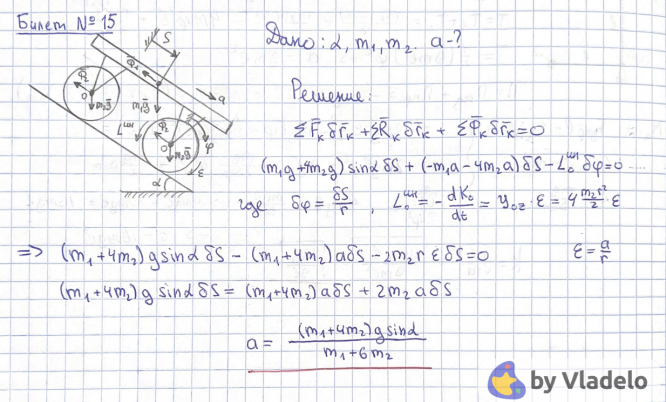 Билет №15
Дано: α, m₁, m₂. a-?
Решение:
ΣF̄ₖδr̄ₖ + ΣR̄ₖδr̄ₖ + ΣΦ̄ₖδr̄ₖ = 0
(m₁g+4m₂g) sinα δS + (-m₁a-4m₂a) δS - L₀ᵘⁿ δφ = 0
где δφ = δS/r, L₀ᵘⁿ = - dK₀/dt = Y₀z · ε = 4 m₂r²/2 · ε
=> (m₁+4m₂) g sinα δS - (m₁+4m₂) a δS - 2m₂ r ε δS = 0 ε = a/r
(m₁+4m₂) g sinα δS = (m₁+4m₂) a δS + 2m₂ a δS
a = (m₁+4m₂) g sinα / m₁+6m₂
S
Φ̄₂
Φ̄₁
O
m₂ḡ
m₁ḡ
a
L₀ᵘⁿ
Φ̄₂
O
m₂ḡ
φ
ε
α
by Vladelo